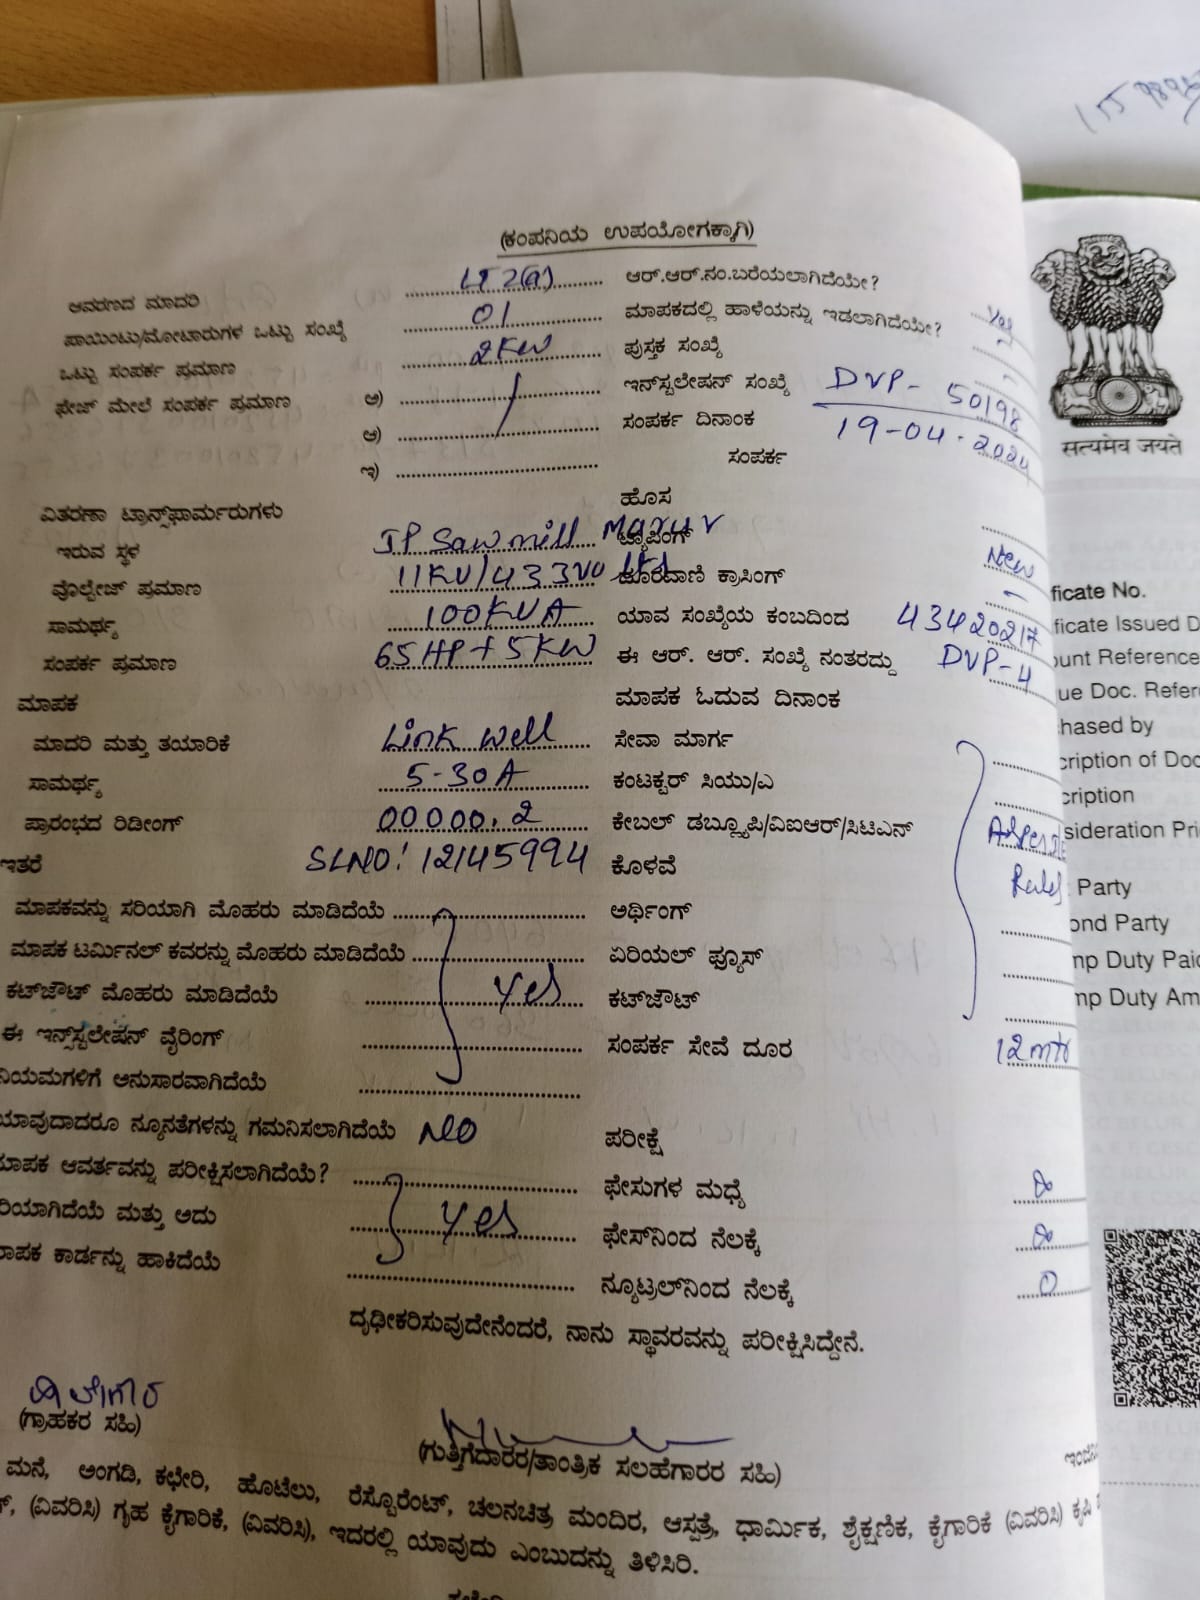 (ಕಂಪನಿಯ ಉಪಯೋಗಕ್ಕಾಗಿ)
ಆವರಣದ ಮಾದರಿ LT 2(a) ಆರ್.ಆರ್.ನಂ.ಬರೆಯಲಾಗಿದೆಯೇ? Yes
ಪಾಯಿಂಟು/ಮೋಟಾರುಗಳ ಒಟ್ಟು ಸಂಖ್ಯೆ 01 ಮಾಪಕದಲ್ಲಿ ಹಾಳೆಯನ್ನು ಇಡಲಾಗಿದೆಯೇ?
ಒಟ್ಟು ಸಂಪರ್ಕ ಪ್ರಮಾಣ 2KW ಪುಸ್ತಕ ಸಂಖ್ಯೆ -
ಫೇಜ್ ಮೇಲೆ ಸಂಪರ್ಕ ಪ್ರಮಾಣ ಅ) ಇನ್‌ಸ್ಟಲೇಷನ್ ಸಂಖ್ಯೆ DVP-50198
ಆ) ಸಂಪರ್ಕ ದಿನಾಂಕ 19-04-2024
ಇ) ಸಂಪರ್ಕ
ವಿತರಣಾ ಟ್ರಾನ್ಸ್‌ಫಾರ್ಮರುಗಳು ಹೊಸ
ಇರುವ ಸ್ಥಳ JP Sawmill ಟ್ಯಾಪಿಂಗ್ New
ವೊಲ್ಟೇಜ್ ಪ್ರಮಾಣ 11KV/433 ದೂರವಾಣಿ ಕ್ರಾಸಿಂಗ್ -
ಸಾಮರ್ಥ್ಯ 100KVA ಯಾವ ಸಂಖ್ಯೆಯ ಕಂಬದಿಂದ
ಸಂಪರ್ಕ ಪ್ರಮಾಣ 65HP+5KW ಈ ಆರ್. ಆರ್. ಸಂಖ್ಯೆ ನಂತರದ್ದು DVP-4
ಮಾಪಕ ಮಾಪಕ ಓದುವ ದಿನಾಂಕ
ಮಾದರಿ ಮತ್ತು ತಯಾರಿಕೆ Link well ಸೇವಾ ಮಾರ್ಗ
ಸಾಮರ್ಥ್ಯ 5-30A ಕಂಟಕ್ಟರ್ ಸಿಯು/ಎ
ಪ್ರಾರಂಭದ ರಿಡೀಂಗ್ 00000.2 ಕೇಬಲ್ ಡಬ್ಲ್ಯೂಪಿ/ವಿಐಆರ್/ಸಿಟಿಎನ್
ಇತರೆ SLNO: 12145994 ಕೊಳವೆ Rules
ಮಾಪಕವನ್ನು ಸರಿಯಾಗಿ ಮೊಹರು ಮಾಡಿದೆಯೆ ಅರ್ಥಿಂಗ್
ಮಾಪಕ ಟರ್ಮಿನಲ್ ಕವರನ್ನು ಮೊಹರು ಮಾಡಿದೆಯೆ ಏರಿಯಲ್ ಫ್ಯೂಸ್
ಕಟ್‌ಜೌಟ್ ಮೊಹರು ಮಾಡಿದೆಯೆ Yes ಕಟ್‌ಜೌಟ್
ಈ ಇನ್‌ಸ್ಟಲೇಷನ್ ವೈರಿಂಗ್ ಸಂಪರ್ಕ ಸೇವೆ ದೂರ 12mtr
ನಿಯಮಗಳಿಗೆ ಅನುಸಾರವಾಗಿದೆಯೆ
ಯಾವುದಾದರೂ ನ್ಯೂನತೆಗಳನ್ನು ಗಮನಿಸಲಾಗಿದೆಯೆ NO ಪರೀಕ್ಷೆ
ಮಾಪಕ ಆವರ್ತವನ್ನು ಪರೀಕ್ಷಿಸಲಾಗಿದೆಯೆ? ಫೇಸುಗಳ ಮಧ್ಯೆ
ರಿಯಾಗಿದೆಯೆ ಮತ್ತು ಅದು Yes ಫೇಸ್‌ನಿಂದ ನೆಲಕ್ಕೆ
ಮಾಪಕ ಕಾರ್ಡನ್ನು ಹಾಕಿದೆಯೆ ನ್ಯೂಟ್ರಲ್‌ನಿಂದ ನೆಲಕ್ಕೆ 0
ದೃಢೀಕರಿಸುವುದೇನೆಂದರೆ, ನಾನು ಸ್ಥಾವರವನ್ನು ಪರೀಕ್ಷಿಸಿದ್ದೇನೆ.
(ಗ್ರಾಹಕರ ಸಹಿ)
(ಗುತ್ತಿಗೆದಾರರ/ತಾಂತ್ರಿಕ ಸಲಹೆಗಾರರ ಸಹಿ)
ಮನೆ, ಅಂಗಡಿ, ಕಛೇರಿ, ಹೊಟೆಲು, ರೆಸ್ಟೊರೆಂಟ್, ಚಲನಚಿತ್ರ ಮಂದಿರ, ಆಸ್ಪತ್ರೆ, ಧಾರ್ಮಿಕ, ಶೈಕ್ಷಣಿಕ, ಕೈಗಾರಿಕೆ (ವಿವರಿಸಿ) ಕೃಷಿ
(ವಿವರಿಸಿ) ಗೃಹ ಕೈಗಾರಿಕೆ, (ವಿವರಿಸಿ), ಇದರಲ್ಲಿ ಯಾವುದು ಎಂಬುದನ್ನು ತಿಳಿಸಿರಿ.
सत्यमेव जयते
ficate No.
ficate Issued D
ount Reference
ue Doc. Refer
hased by
cription of Doc
cription
sideration Pri
Party
ond Party
mp Duty Paid
mp Duty Am